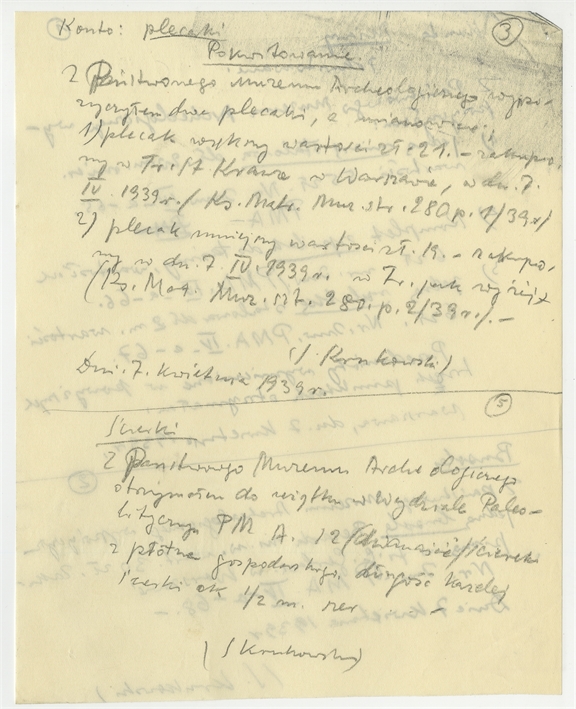 Konto: plecaki
3
Pokwitowanie.
Z Państwowego Muzeum Archeologicznego wypo-
życzyłem dwa plecaki, a mianowicie:
1) plecak większy wartości zł. 21. – zakupio-
ny w Fr. St. w Warszawie, w dn. 7.
IV. 1939 r. / Ks. Matr. Muz. str. 280 p. 1/39 r/
2) plecak mniejszy wartości zł. 19. – zakupio-
ny w dn. 7. IV. 1939 r. w Fr. jak wyżej
(Ks. Mag. Muz. str. 280. p. 2/39 r./. –
(S. Krukowski)
Dnia 7. kwietnia 1939 r.
5
Ścierki
Z Państwowego Muzeum Archeologicznego
otrzymałem do użytku w Wydziale Paleo-
litycznym PMA. 12 /dwanaście/ ścierek
z płótna gospodarskiego, długość każdej
ścierki ok. 1/2 m.
(S Krukowski)